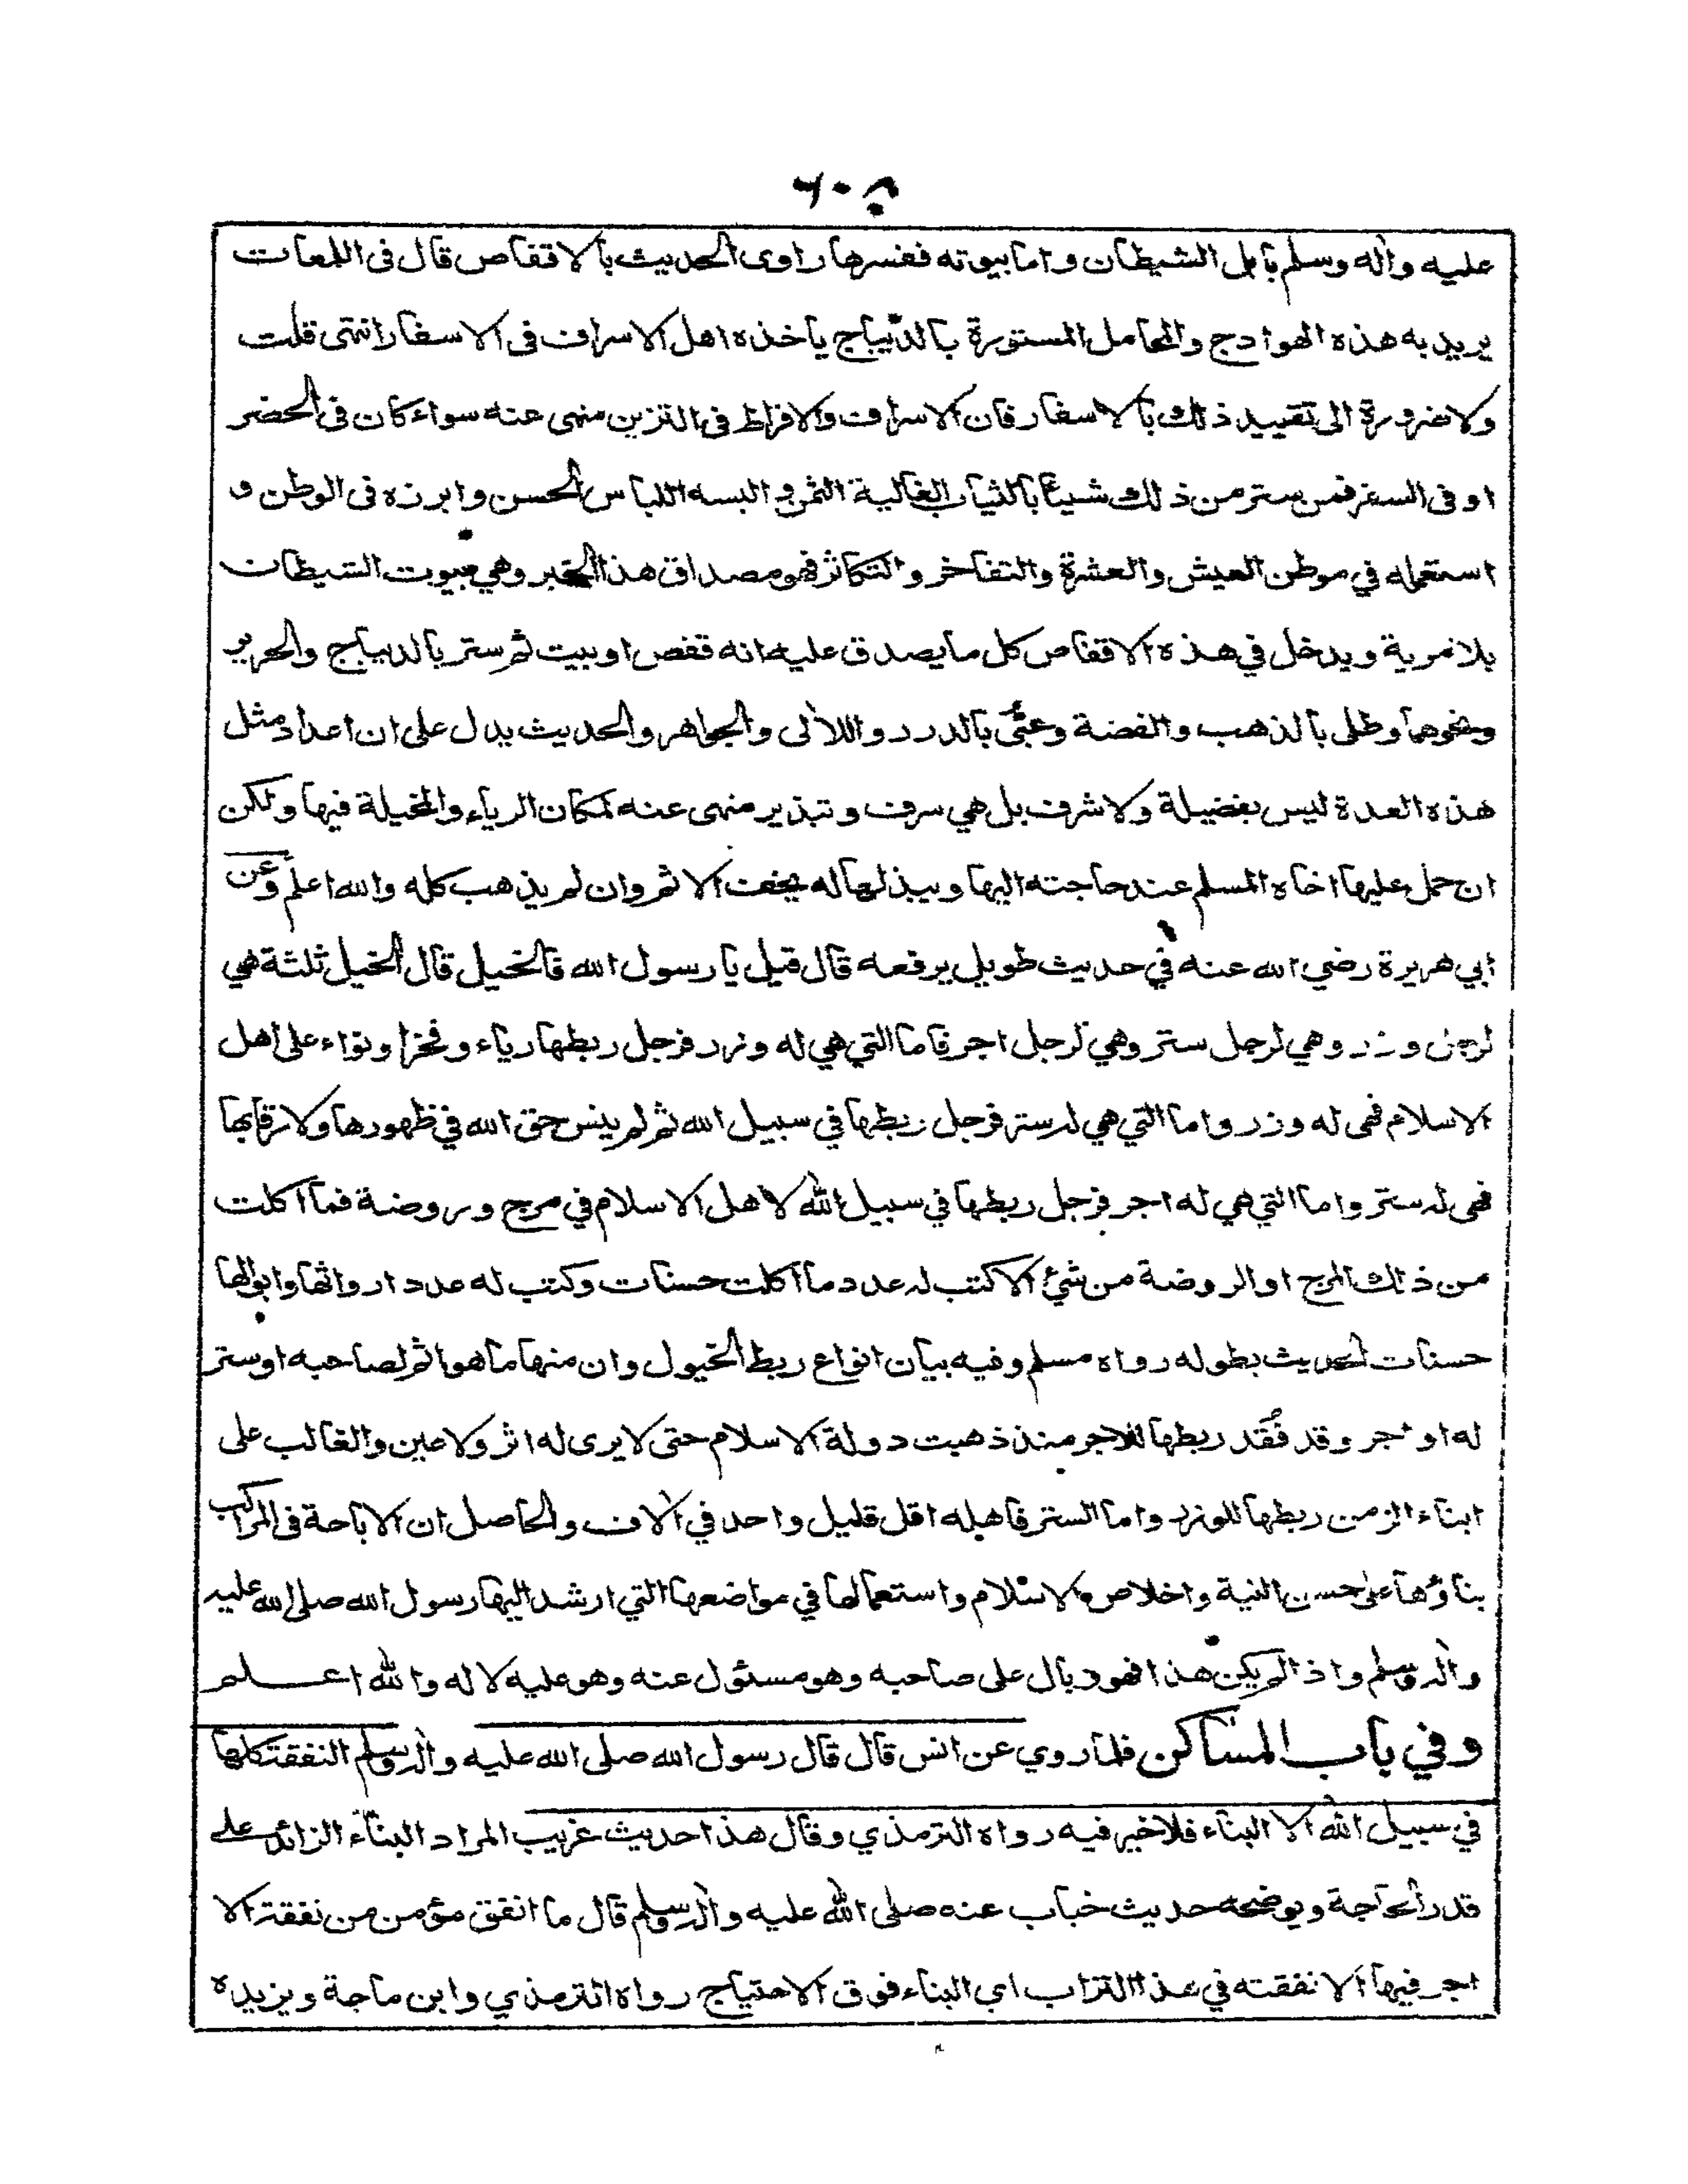 عليه وآله وسلم بابل الشيطان واما بيوته ففسرها راوى الحديث بالاقفاص قال فى اللمعات
يريد به هذه الهوادج والمحامل المستورة بالديباج ياخذه اهل الاسراف فى الاسفار انتهى قلت
ولا ضرورة الى تقييد ذلك بالاسفار فان الاسراف والافراط فى التزين منهى عنه سواء كان فى الحضر
او فى السفر فمن ستر من ذلك شيئا بالثياب الغالية الثمن والبسه اللباس الحسن وابرزه فى الوطن و
استعمله في موطن العيش والعشرة والتفاخر والتكاثر فهو مصداق هذا الخبر وهي بيوت الشيطان
بلا مرية ويدخل في هذه الاقفاص كل ما يصدق عليه انه قفص او بيت ثم ستر بالديباج والحرير
ونحوهما وطلى بالذهب والفضة وعبّى بالدرر واللآلى والجواهر والحديث يدل على ان اعداد مثل
هذه العدة ليس بفضيلة ولا شرف بل هي سرف وتبذير منهى عنه لمكان الرياء والمخيلة فيها ولكن
ان حمل عليها اخاه المسلم عند حاجته اليها ويبذلها له يخفف الاثم وان لم يذهب كله والله اعلم وعن
ابي هريرة رضي الله عنه في حديث طويل يرفعه قال قيل يا رسول الله فالخيل قال الخيل ثلثة هي
لرجل وزر وهي لرجل ستر وهي لرجل اجر فاما التي هي له وزر فرجل ربطها رياء وفخرا ونواء على اهل
الاسلام فهى له وزر واما التي هي له ستر فرجل ربطها في سبيل الله ثم لم ينس حق الله في ظهورها ولا رقابها
فهى له ستر واما التي هي له اجر فرجل ربطها في سبيل الله لاهل الاسلام في مرج وروضة فما اكلت
من ذلك المرج او الروضة من شئ الا كتب له عدد ما اكلت حسنات وكتب له عدد ارواثها وابوالها
حسنات الحديث بطوله رواه مسلم وفيه بيان انواع ربط الخيول وان منها ما هو اثم لصاحبه او ستر
له او اجر وقد فُقد ربطها للاجر منذ ذهبت دولة الاسلام حتى لا يرى له اثر ولا عين والغالب على
ابناء الزمن ربطها للوزر واما الستر فاهله اقل قليل واحد في آلاف والحاصل ان الاباحة فى المراكب
بناؤها على حسن النية واخلاص الاسلام واستعمالها في مواضعها التي ارشد اليها رسول الله صلى الله عليه
وآله وسلم واذا لم يكن هذا فهو وبال على صاحبه وهو مسئول عنه وهو عليه لا له والله اعلم
وفي باب المساكن فلما روي عن انس قال قال رسول الله صلى الله عليه وآله وسلم النفقة كلها
في سبيل الله الا البناء فلا خير فيه رواه الترمذي وقال هذا حديث غريب المراد البناء الزائد على
قدر الحاجة ويوضحه حديث خباب عنه صلى الله عليه وآله وسلم قال ما انفق مؤمن من نفقة الا
اجر فيها الا نفقته في هذا التراب اي البناء فوق الاحتياج رواه الترمذي وابن ماجة ويزيده